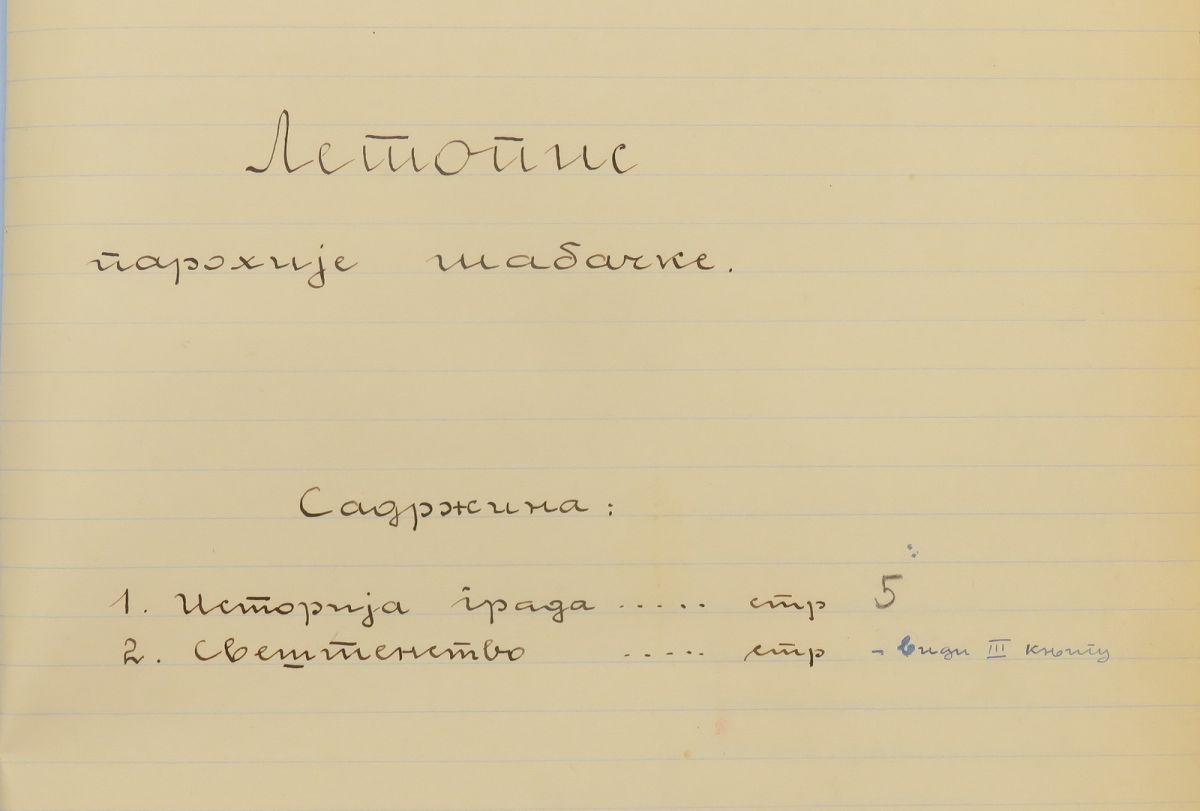 Летопис
парохије шабачке.
Садржина:
1. Историја града ..... стр 5
2. Свештенство ..... стр - види III књигу